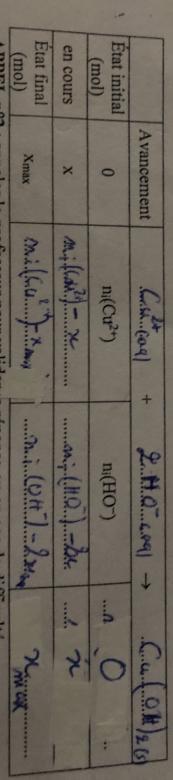 Avancement Cu²⁺(aq) + 2 HO⁻(aq) → Cu(OH)₂(s)
État initial (mol) 0 nᵢ(Cu²⁺) nᵢ(HO⁻) 0
en cours x nᵢ(Cu²⁺) - x nᵢ(HO⁻) - 2x x
État final (mol) xmax nᵢ(Cu²⁺) - xmax nᵢ(OH⁻) - 2xmax xmax